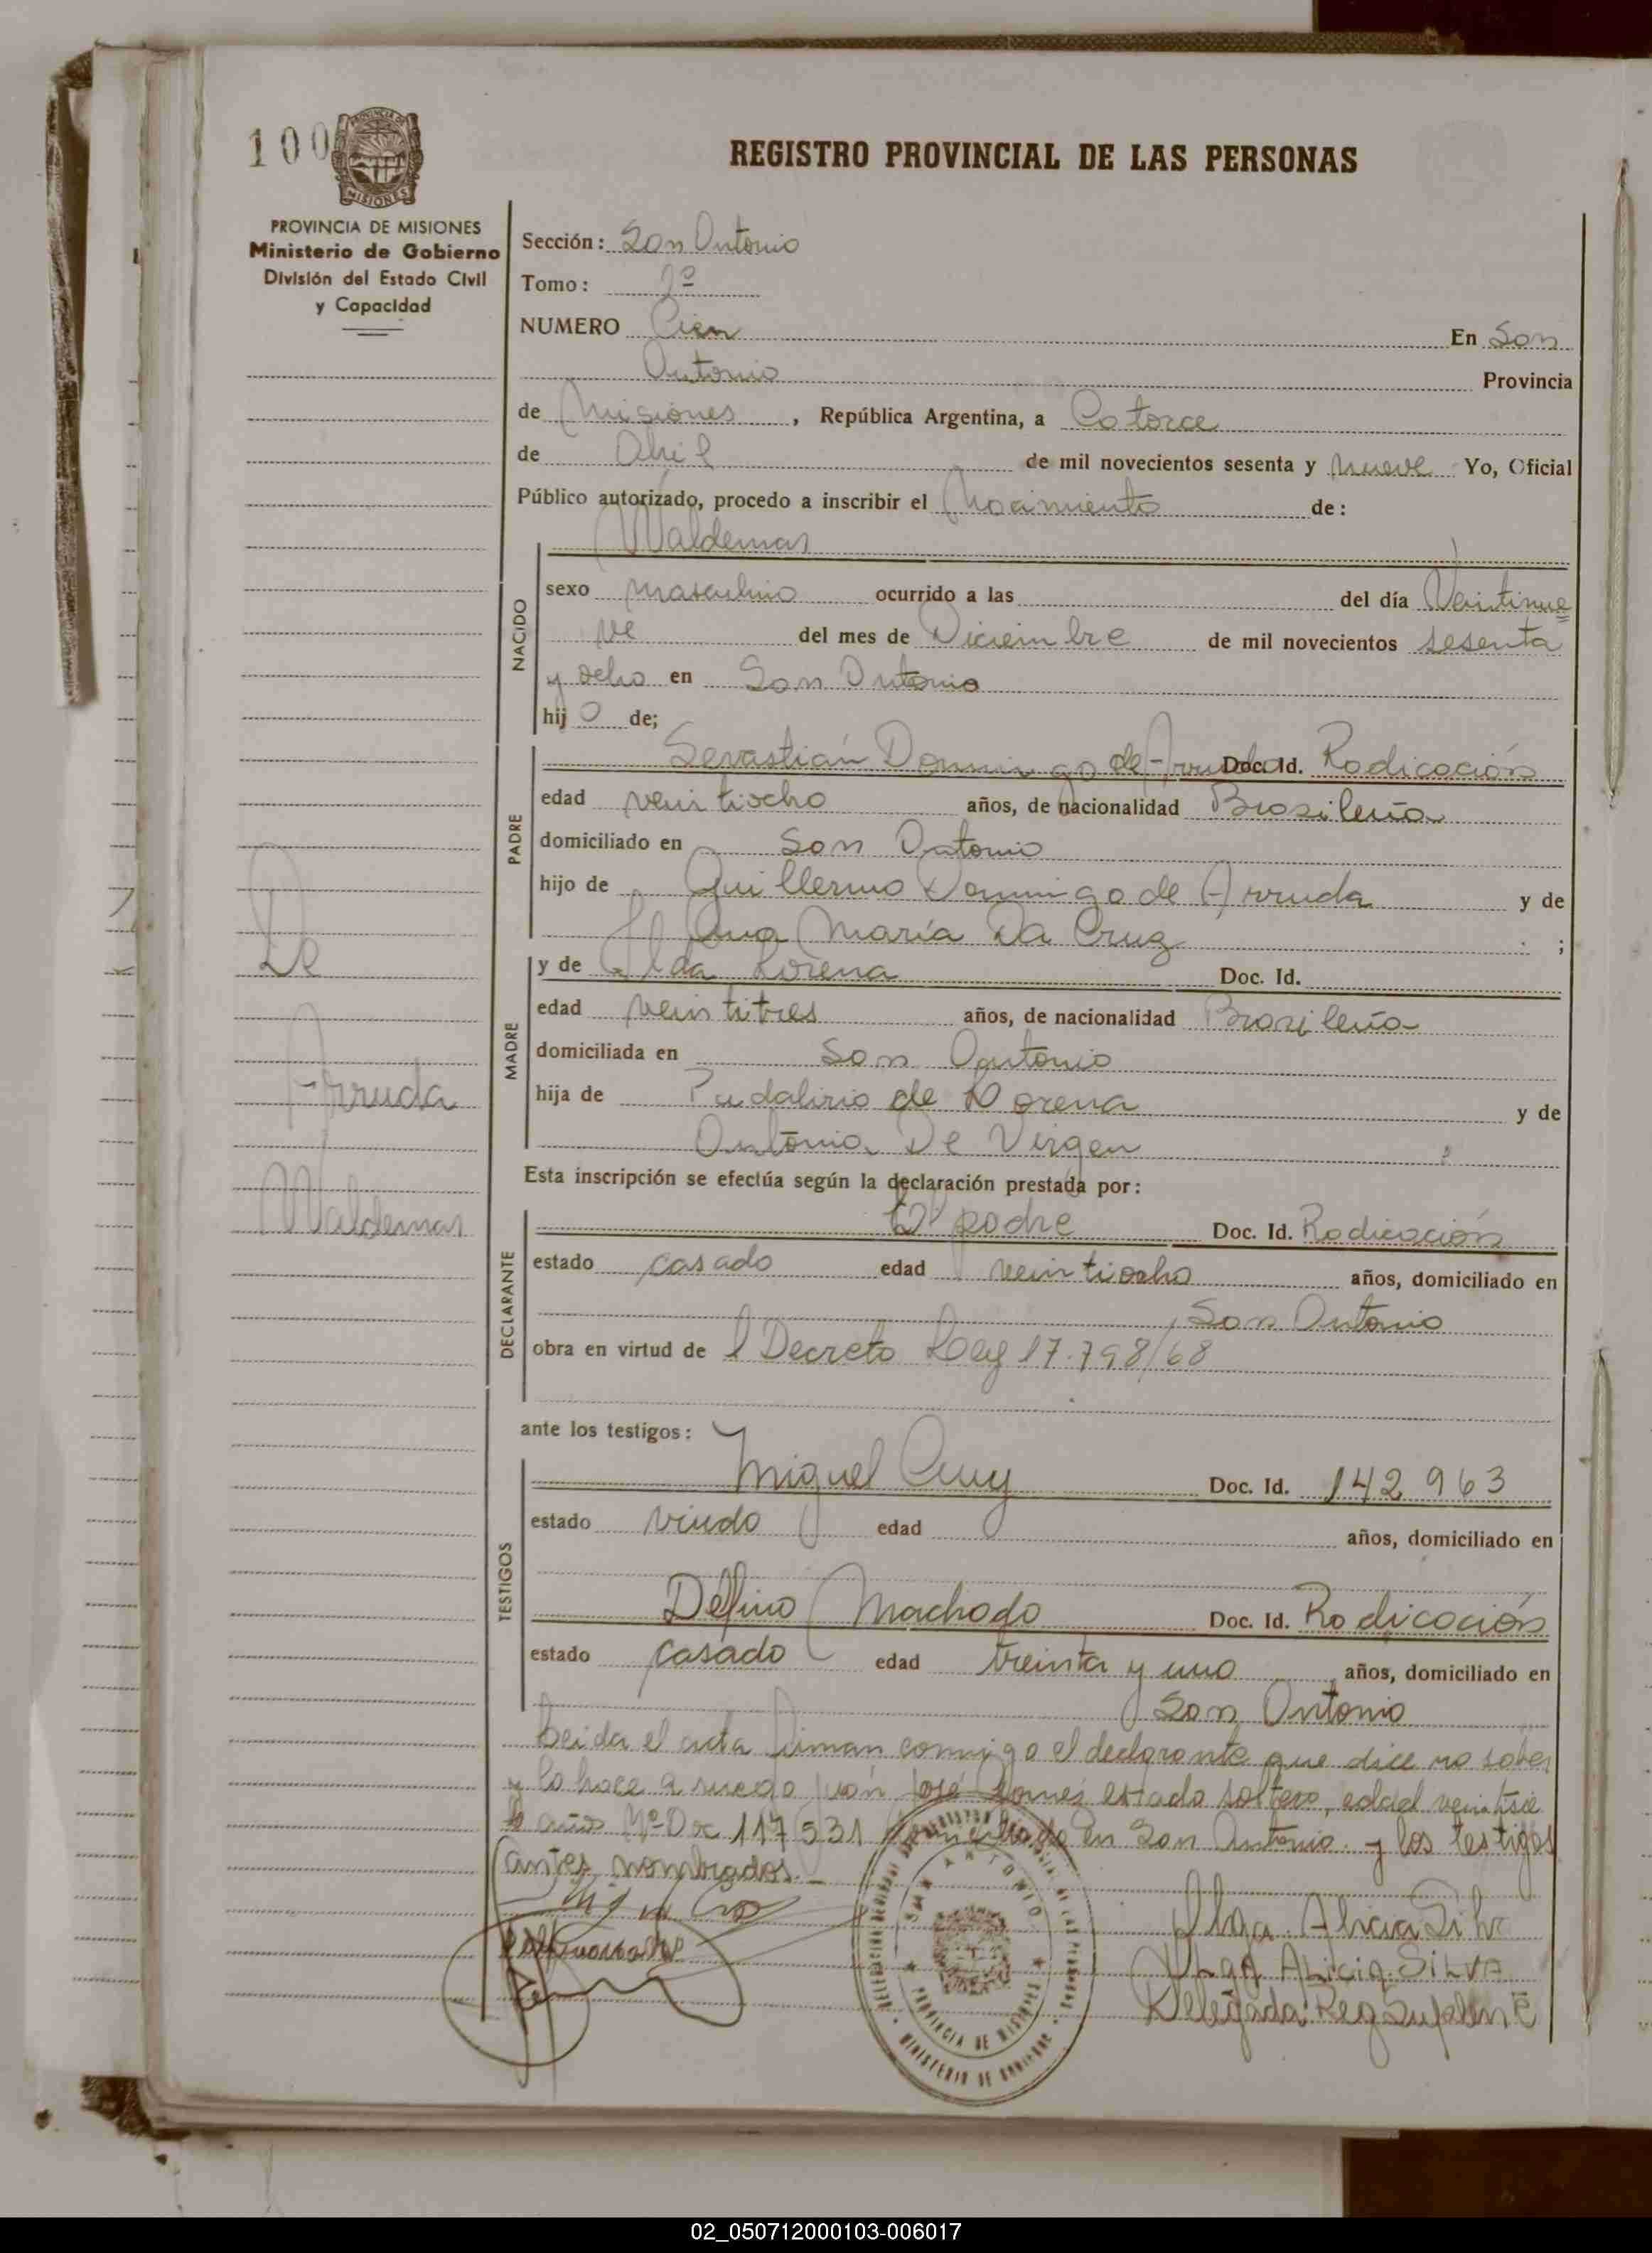 100
REGISTRO PROVINCIAL DE LAS PERSONAS
PROVINCIA DE MISIONES
Ministerio de Gobierno
División del Estado Civil
y Capacidad
Sección: San Antonio
Tomo:
NUMERO Cien En San
Antonio Provincia
de Misiones, República Argentina, a Catorce
de Abril de mil novecientos sesenta y nueve Yo, Oficial
Público autorizado, procedo a inscribir el Nacimiento de:
Waldemar
NACIDO
sexo masculino ocurrido a las del día Veintinue
ve del mes de Diciembre de mil novecientos sesenta
y ocho en San Antonio
hij o de;
PADRE
Sevastián Domingo de Arruda Doc. Id. Radicación
edad veintiocho años, de nacionalidad Brasileña
domiciliado en San Antonio
hijo de Guillermo Domingo de Arruda y de
Ana María Da Cruz ;
MADRE
y de Ilda Lorena Doc. Id.
edad veintitres años, de nacionalidad Brasileña
domiciliada en San Antonio
hija de de Lorena y de
Antonia De Virgen
De
Arruda
Waldemar
Esta inscripción se efectúa según la declaración prestada por:
DECLARANTE
El padre Doc. Id. Radicación
estado casado edad veintiocho años, domiciliado en
San Antonio
obra en virtud de l Decreto Ley 17.798/68
ante los testigos:
TESTIGOS
Miguel Doc. Id. 142963
estado viudo edad años, domiciliado en
Delfino Machado Doc. Id. Radicación
estado casado edad treinta y uno años, domiciliado en
San Antonio
Leida el acta firman conmigo el declarante que dice no saber
y lo hace a ruego Juan José estado soltero, edad
años Nº Doc 117531 en San Antonio y los testigos
antes nombrados.
Olga Alicia Silva
OLGA ALICIA SILVA
Delegada Reg Suplente
SAN ANTONIO
PROVINCIA DE MISIONES
MINISTERIO DE GOBIERNO
02_050712000103-006017